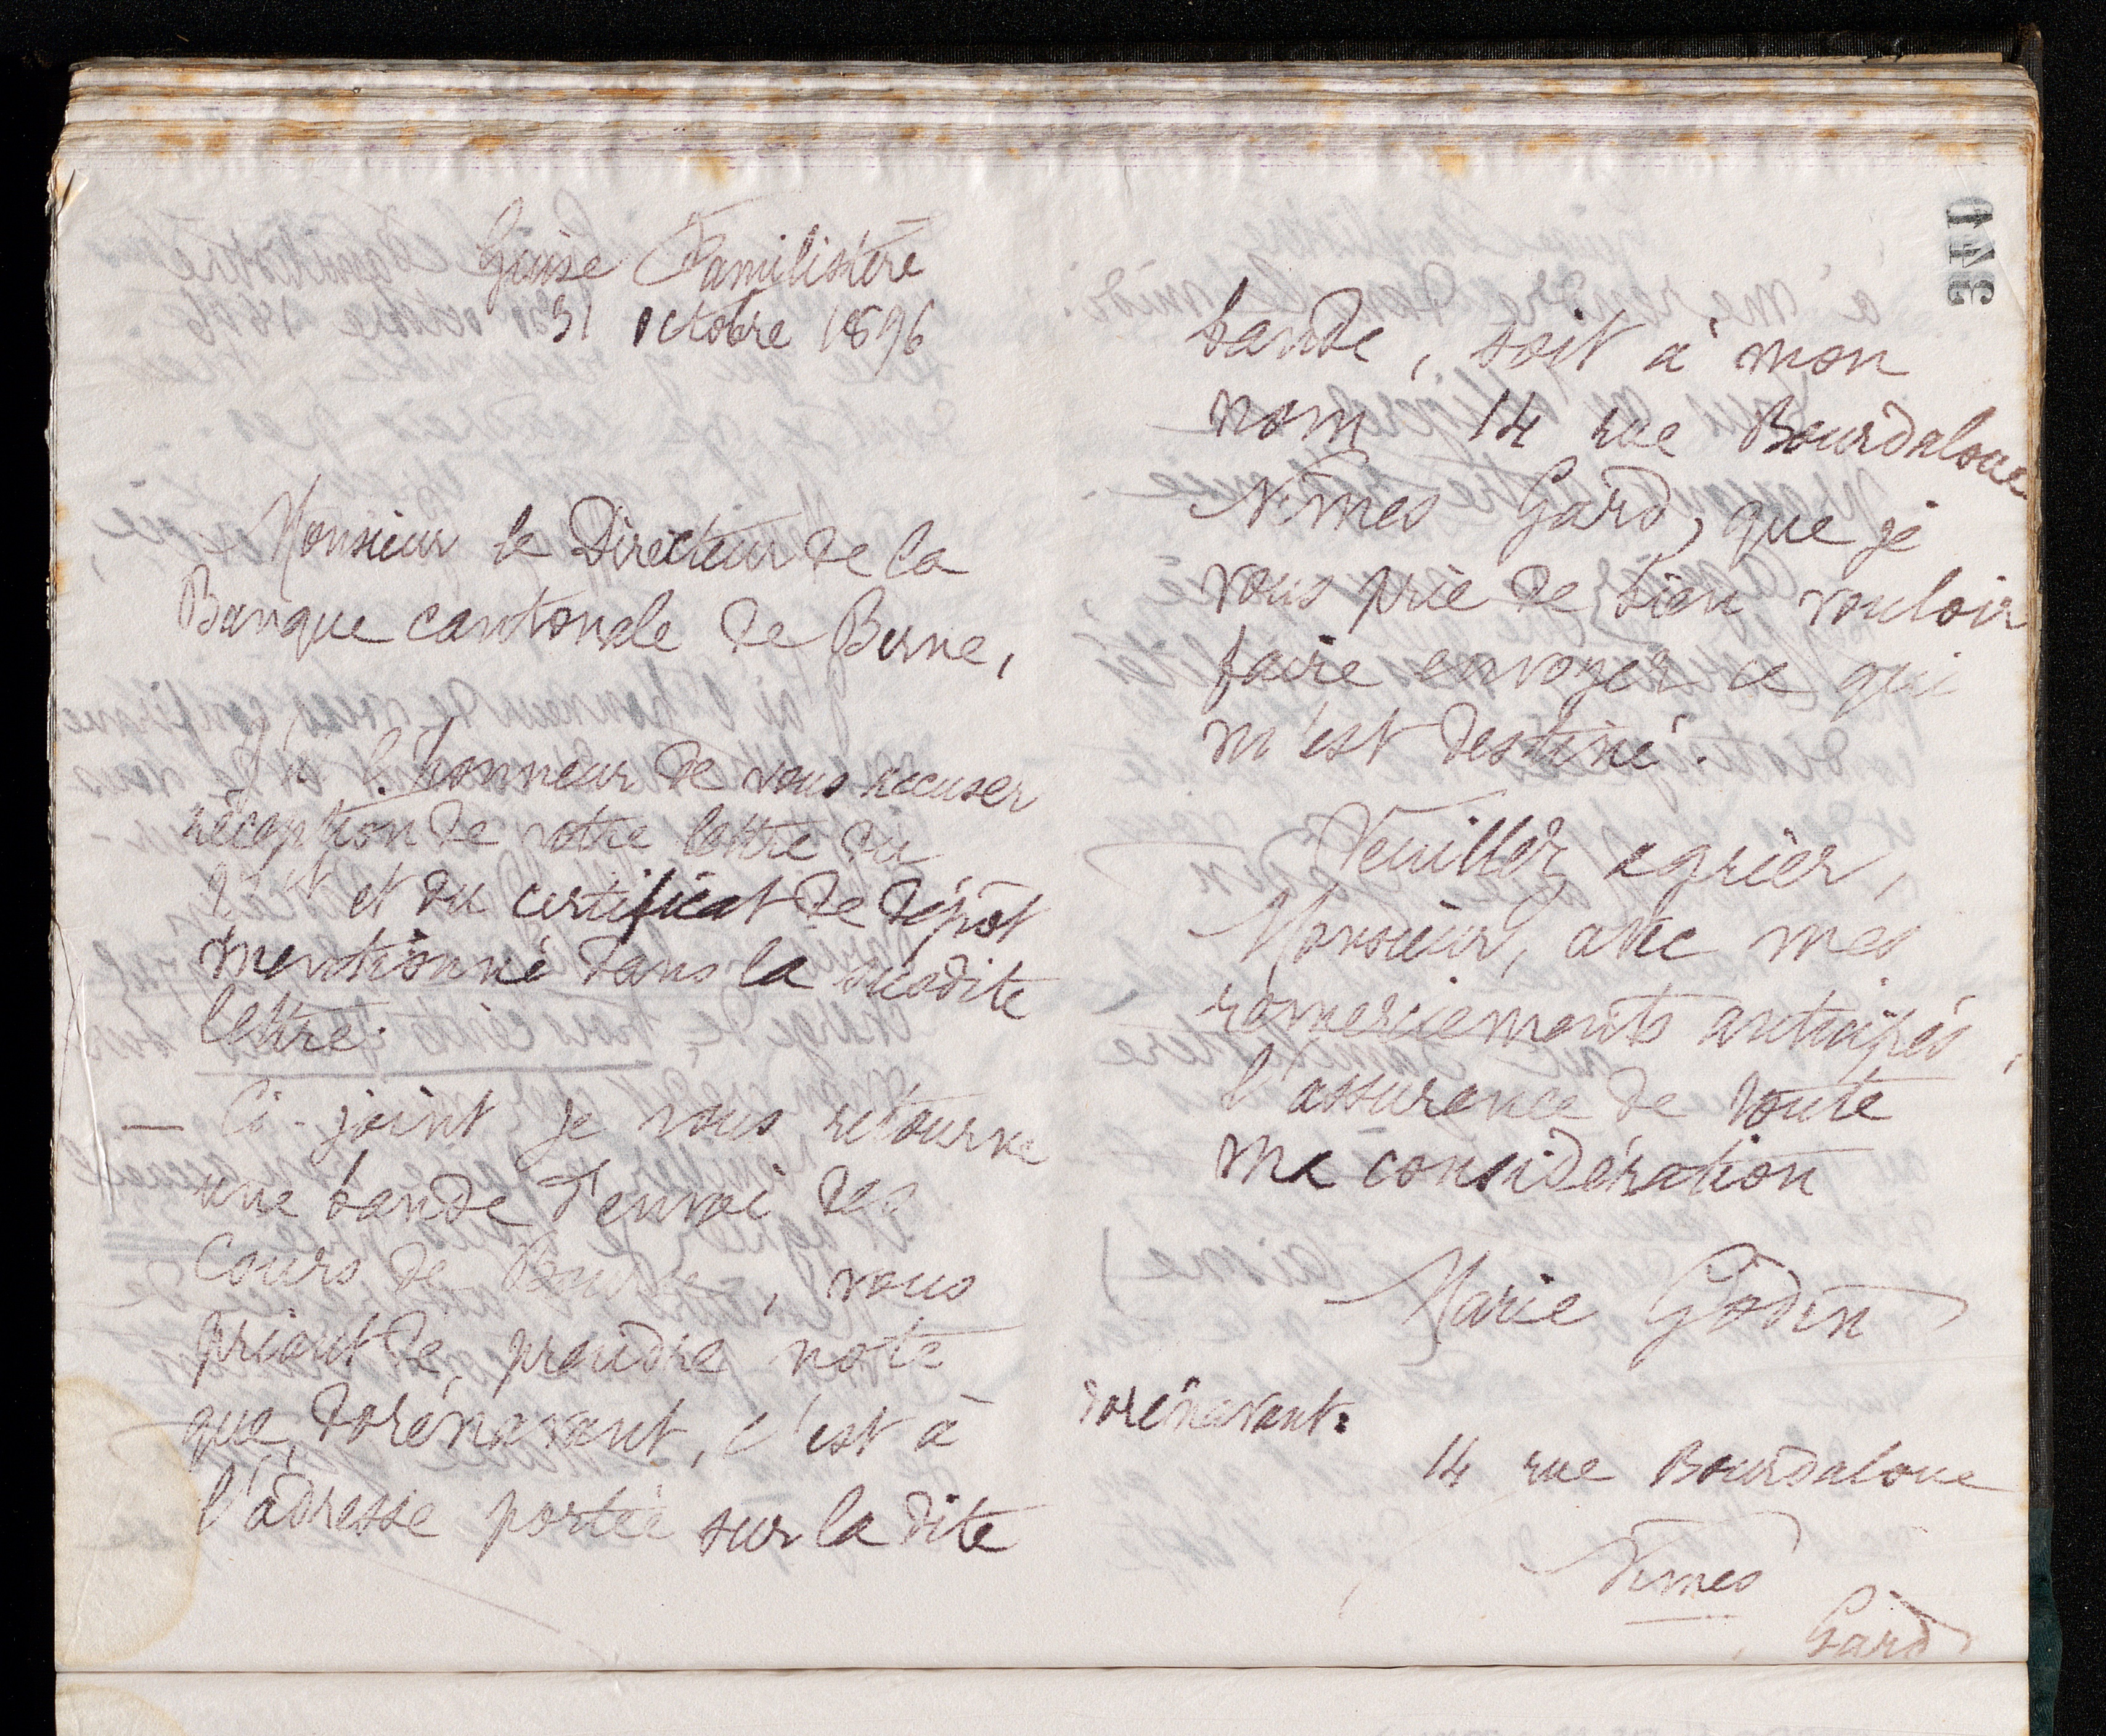 Guise Familistère
31 octobre 1896
Monsieur le Directeur de la
Banque cantonale de Berne,
J'ai l'honneur de vous accuser
réception de votre lettre du
et du certificat de dépôt
mentionné dans la susdite
lettre.
— Ci-joint je vous retourne
une bande d'envoi des
Cours de Bourse, vous
priant de prendre note
que, dorénavant, c'est à
l'adresse portée sur la dite
bande, soit à mon
nom 14 rue Bourdaloue
Nîmes Gard, que je
vous prie de bien vouloir
faire envoyer ce qui
m'est destiné.
Veuillez agréer,
Monsieur, avec mes
remerciements anticipés,
l'assurance de toute
ma considération
Marie Godin
dorénavant:
14 rue Bourdaloue
Nîmes
Gard